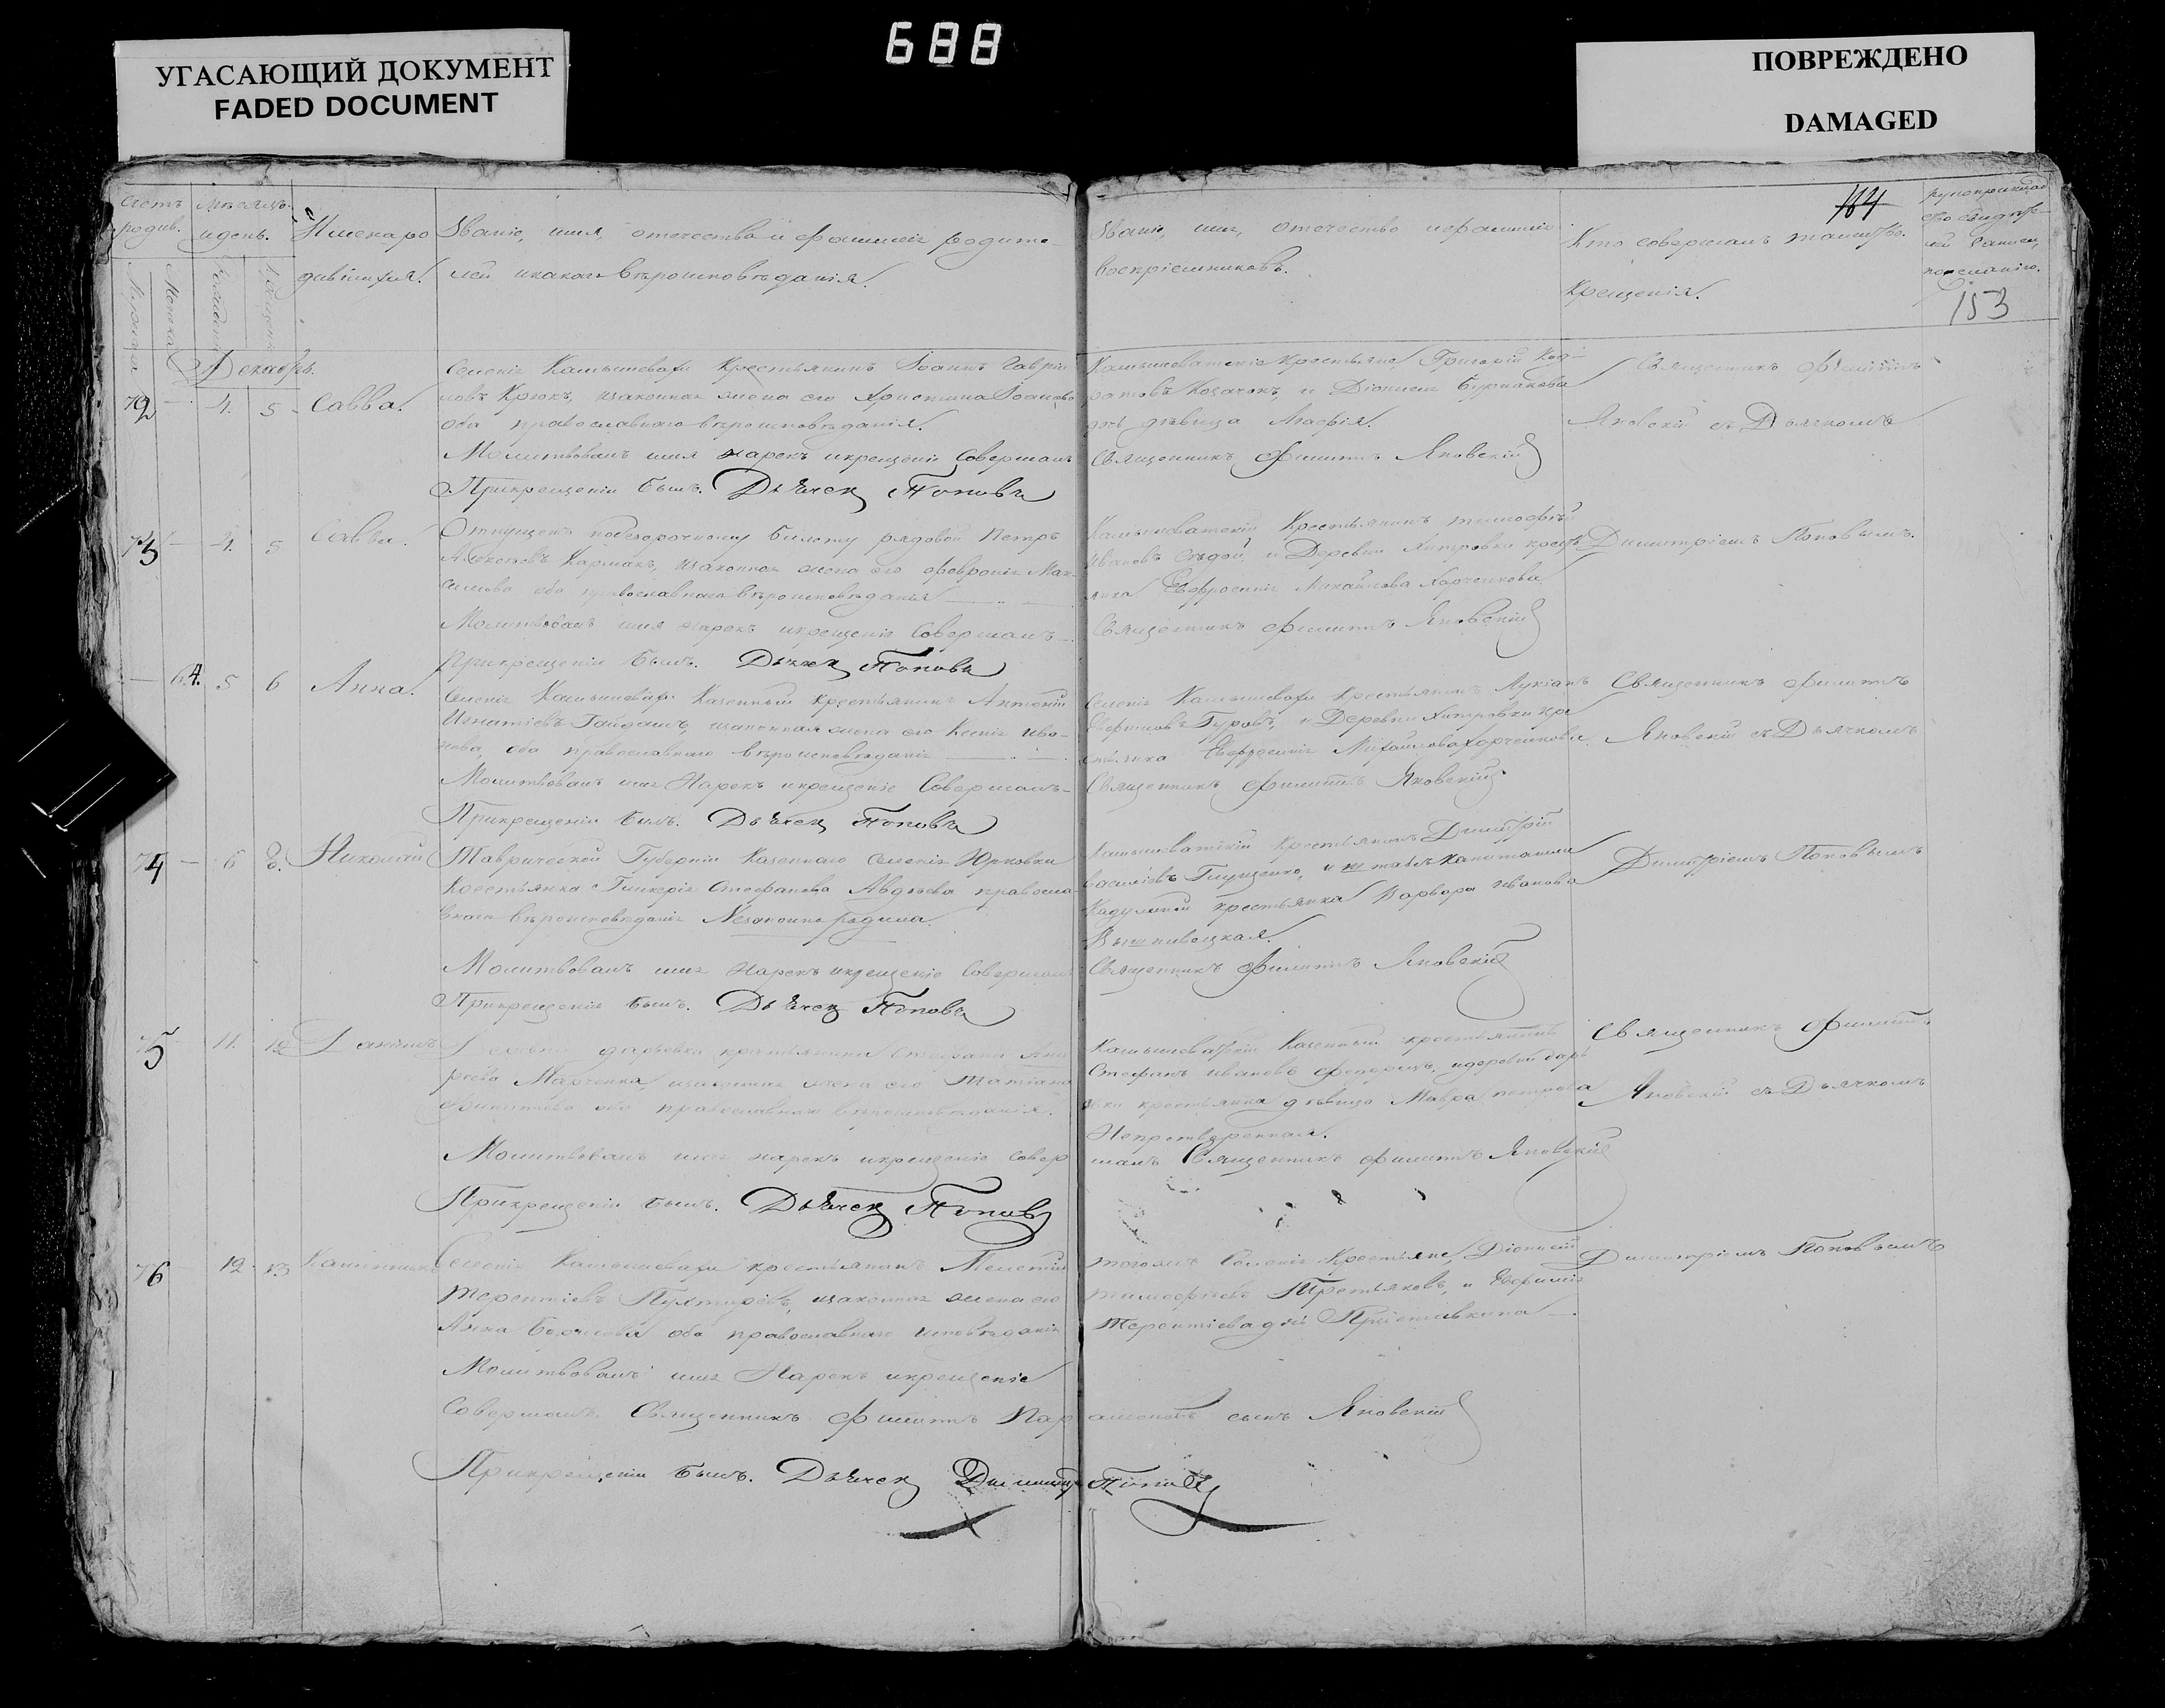 УГАСАЮЩИЙ ДОКУМЕНТ
FADED DOCUMENT
688
ПОВРЕЖДЕНО
DAMAGED
164
153
Счетъ родив.
Мѣсяцъ и день.
Имена родившихся.
Званіе, имя, отечество и фамилія родите-
лей и какого вѣроисповѣданія.
Званіе, имя, отечество и фамилія
воспріемниковъ.
Кто совершалъ таинство
крещенія.
Декабрь.
72 4. 5 Савва.
Селенія Камышевахи Крестьянинъ Іоаннъ Гаврі-
ловъ Крюкъ, и законная жена его Христина Іоанова
оба православнаго вѣроисповѣданія.
Молитвовалъ имя нарекъ и крещеніе совершалъ
При крещеніи былъ. Дьячек Поповъ
Камышеватскіе Крестьяне, Григорій
Козачокъ, и Діонисія Бурлакова
дочь дѣвица Агафія.
Священникъ Филиппъ Яновскій
Священникъ Филиппъ
Яновскій съ Дьячкомъ
73 4. 5 Савва.
Отпущенъ по безсрочному билету рядовой Петръ
Алексѣевъ Кармакъ, и законная жена его Февронія Мак-
симова оба православнаго вѣроисповѣданія
Молитвовалъ имя нарекъ и крещеніе совершалъ
При крещеніи былъ. Дьячек Поповъ
Камышеватскій Крестьянинъ Тимофѣй
Ивановъ Сѣдой, и Деревни Хитровки крест-
янка Евфросинія Михайлова Харченкова
Священникъ Филиппъ Яновскій
Димитріемъ Поповымъ.
64. 5 6 Анна.
Селенія Камышевахи Казенный крестьянинъ Антоній
Игнатіевъ Гайдашъ, и законная жена его Ксенія Ива-
нова, оба православнаго вѣроисповѣданія
Молитвовалъ имя Нарекъ и крещеніе Совершалъ
При крещеніи былъ. Дьячек Поповъ
Селенія Камышевахи Крестьянинъ Лукіанъ
Гуровъ, и Деревни Хитровки кре-
стьянка Евфросинія Михайлова Харченкова.
Священникъ Филиппъ Яновскій
Священникъ Филиппъ
Яновскій съ Дьячкомъ
74 6 8. Николай
Таврической Губерніи Казеннаго Селенія Юрковки
Крестьянка Гликерія Стефанова Авдѣева правосла-
внаго вѣроисповѣданія Незаконно родила.
Молитвовалъ имя Нарекъ и крещеніе Совершалъ
При крещеніи былъ. Дьячек Поповъ
Камышеватскій Крестьянинъ Димитрій
Василіевъ Глущенко, и штабсъ Капитанши
крестьянка Варвара Иванова
Вышнивецкая.
Священникъ Филиппъ Яновскій
Димитріемъ Поповымъ
75 11. 12 Даніилъ
Деревни Дарьевки крестьянина Стефана Анд-
реева Марченка, и законная жена его Татіана
Филиппова оба православнаго вѣроисповѣданія.
Молитвовалъ имя нарекъ и крещеніе совер
При крещеніи былъ. Дьячек Поповъ
Камышеватскій Казенный крестьянинъ
Стефанъ Ивановъ Федорецъ, и деревни Дарь-
евки крестьянка дѣвица Мавра Петрова
Непретваренная.
шалъ Священникъ Филиппъ Яновскій
Священникъ Филиппъ
Яновскій съ Дьячкомъ
76 12. 13
Селенія Камышевахи крестьянинъ Мелетій
Терентіевъ Пухтиревъ, и законная жена его
Анна Борисова оба православнаго исповѣданія
Молитвовалъ имя Нарекъ и крещеніе
Совершалъ. Священникъ Филиппъ Парамоновъ сынъ Яновскій
При крещеніи былъ. Дьячек Димитр Поповъ
Тогожъ Селенія Крестьяне, Діонисій
Тимофѣевъ Третьяковъ, и Евфимія
Терентіева дочь Пріставкина
Димитріемъ Поповымъ